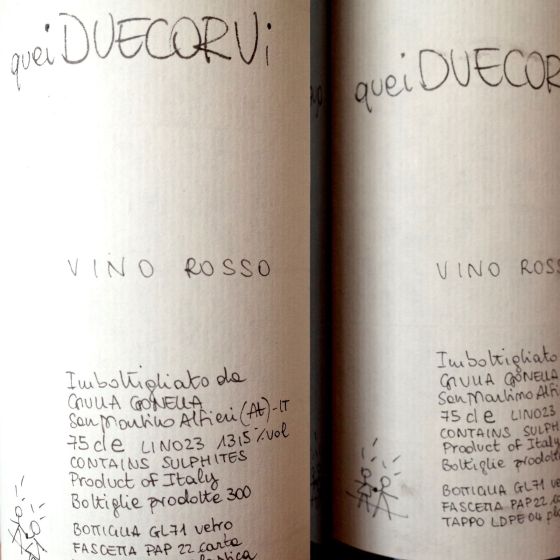 quei DUECORVi
VINO ROSSO
Imbottigliato da
GIULIA GONELLA
San Martino Alfieri (At)-IT
75 cle LINO23 13,5%vol
CONTAINS SULPHITES
Product of Italy
Bottiglie prodotte 300
BOTTIGLIA GL71 vetro
FASCETTA PAP 22 carta
quei DUECOR
VINO ROSS
Imbottigliato
GIULIA GONELLA
San Martino Alfi
75 cle LINO23
CONTAINS SULPH
Product of Ital
Bottiglie prodott
BOTTIGLIA GL71 ve
FASCETTA PAP 22
TAPPO LDPE 04 pl